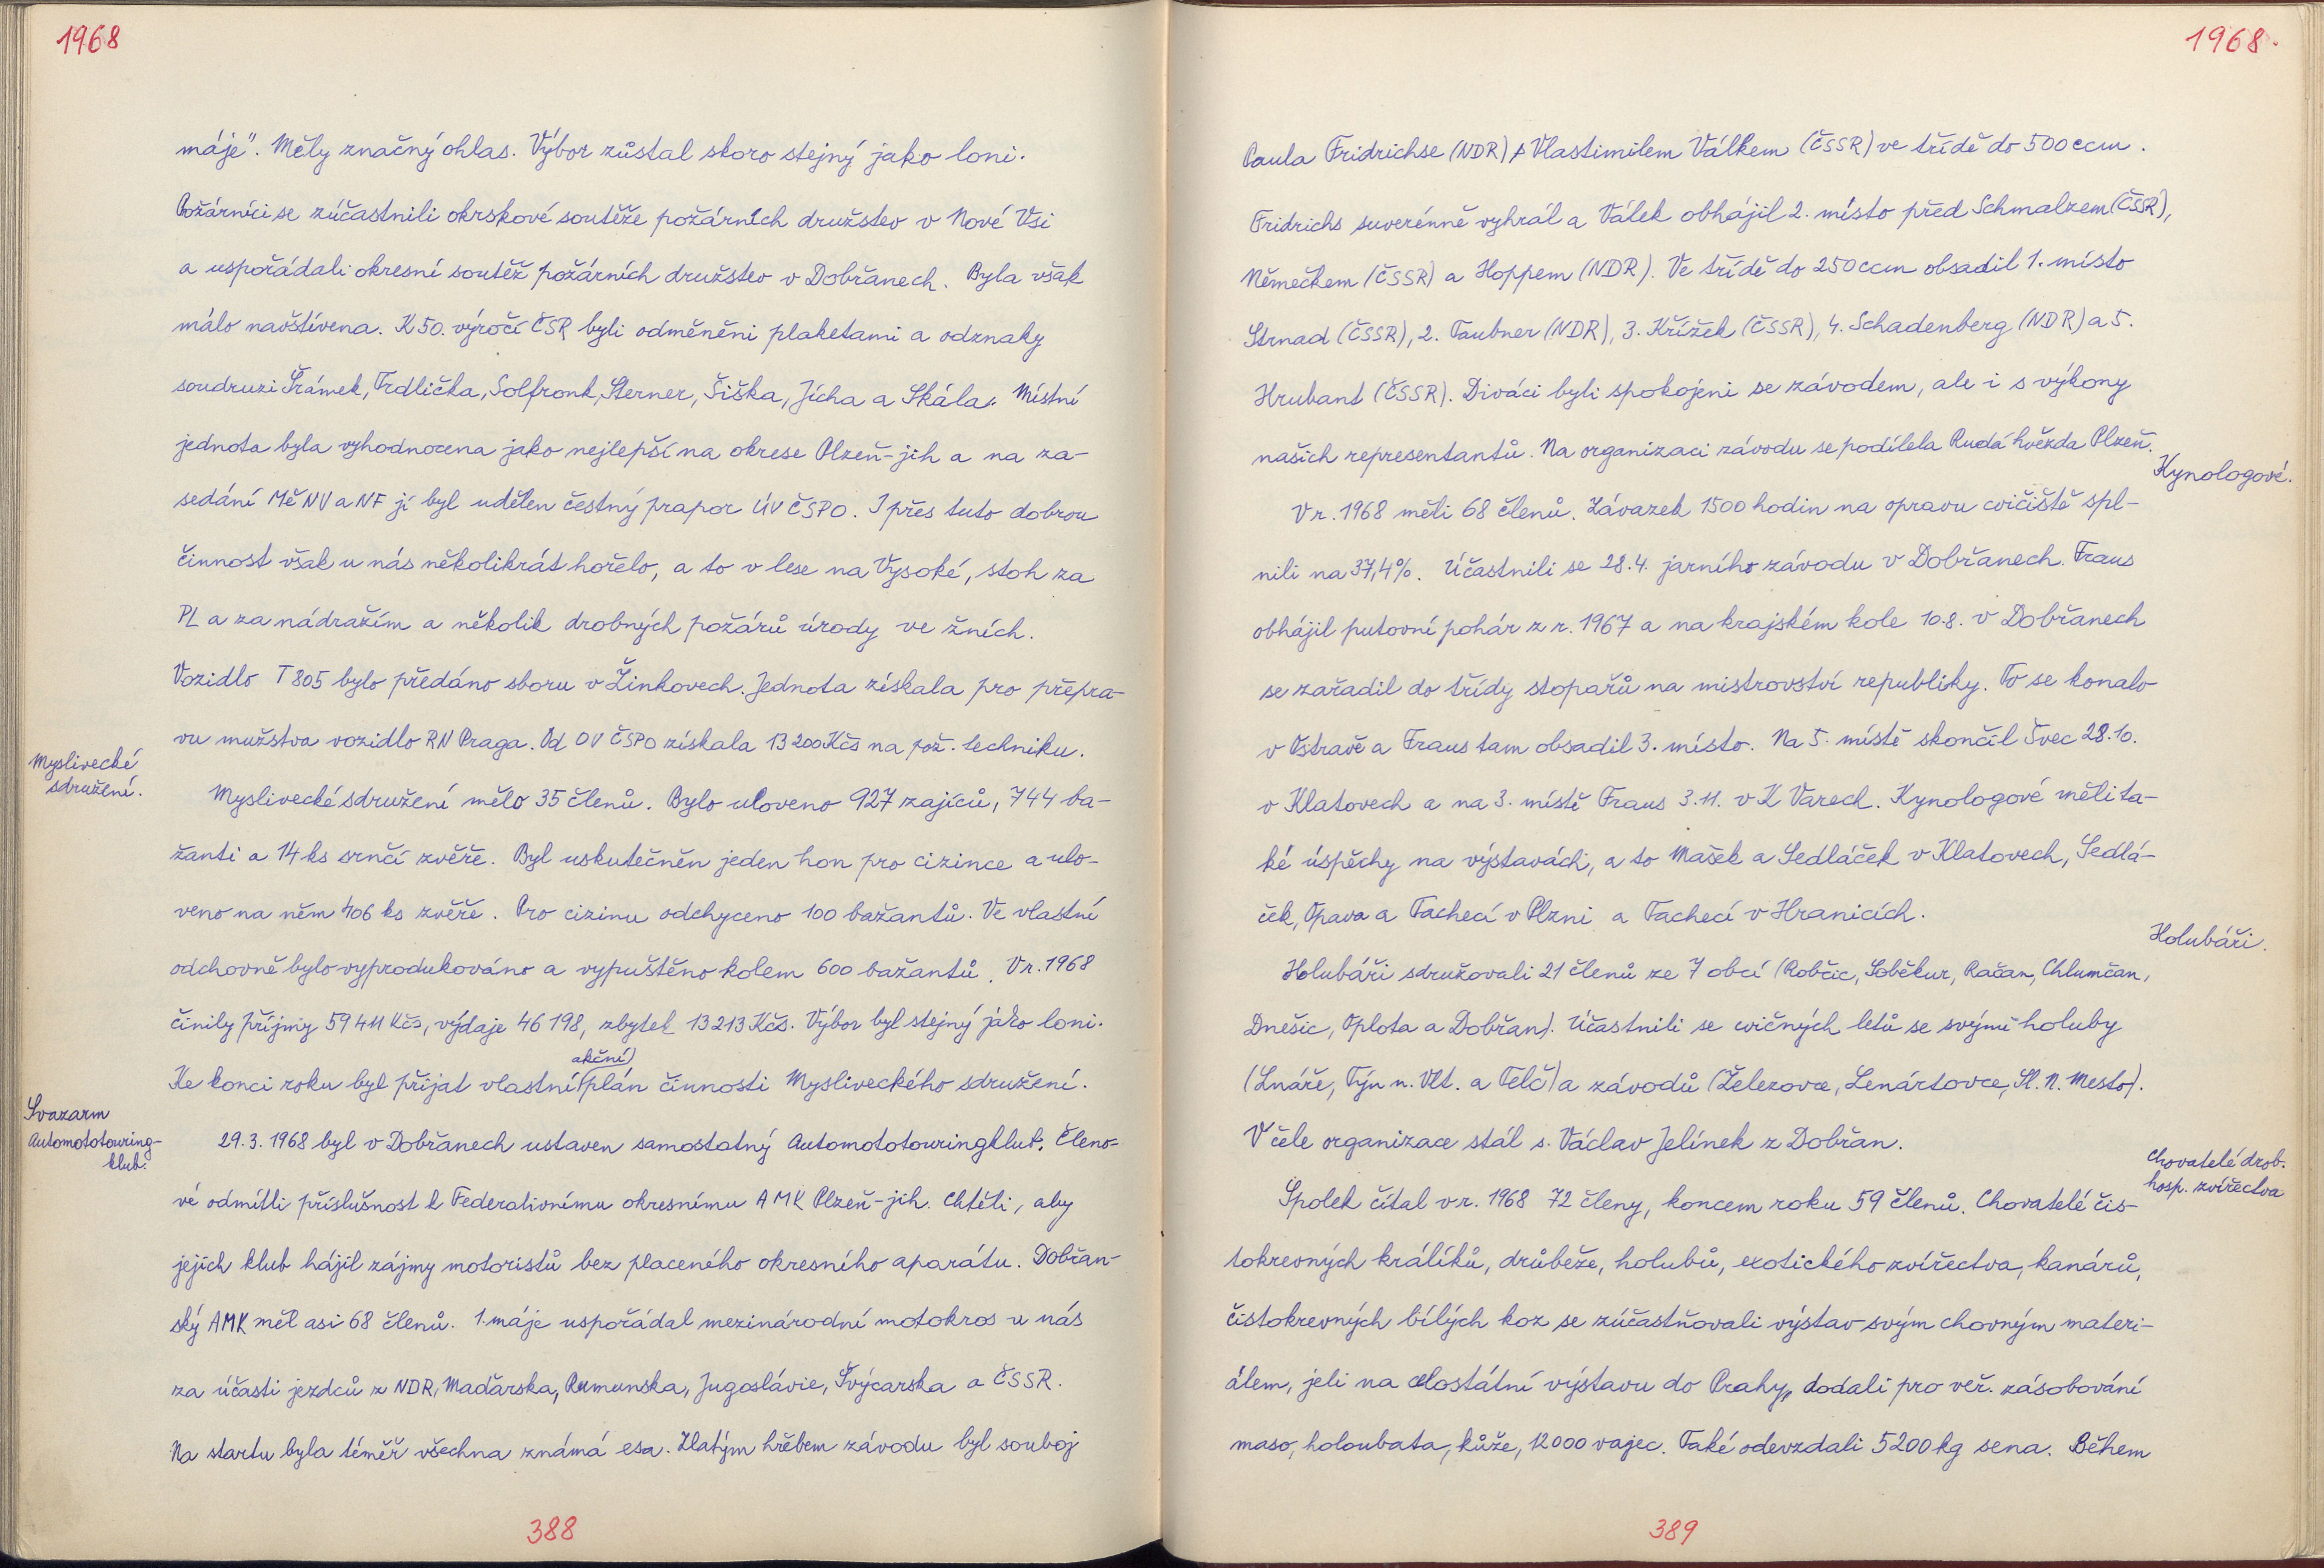 1968
máje". Měly značný ohlas. Výbor zůstal skoro stejný jako loni.
Požárníci se zúčastnili okrskové soutěže požárních družstev v Nové Vši
a uspořádali okresní soutěž požárních družstev v Dobřanech. Byla však
málo navštívena. K 50. výročí ČSR byli odměněni plaketami a odznaky
soudruzi Šrámek, Trdlička, Solfronk, Sterner, Šiška, Jícha a Skála. Místní
jednota byla vyhodnocena jako nejlepší na okrese Plzeň-jih a na za-
sedání MěNV a NF jí byl udělen čestný prapor ÚV ČSPO. I přes tuto dobrou
činnost však u nás několikrát hořelo, a to v lese na Vysoké, stoh za
PL a za nádražím a několik drobných požárů úrody ve žních.
Vozidlo T 805 bylo předáno sboru v Žinkovech. Jednota získala pro přepra-
vu mužstva vozidlo RN Praga. Od OV ČSPO získala 13 200 Kčs na pož. techniku.
Myslivecké
sdružení.
Myslivecké sdružení mělo 35 členů. Bylo uloveno 927 zajíců, 744 ba-
žanti a 14 ks srnčí zvěře. Byl uskutečněn jeden hon pro cizince a ulo-
veno na něm 406 ks zvěře. Pro cizinu odchyceno 100 bažantů. Ve vlastní
odchovně bylo vyprodukováno a vypuštěno kolem 600 bažantů. V r. 1968
činily příjmy 59 411 Kčs, výdaje 46 198, zbytek 13 213 Kčs. Výbor byl stejný jako loni.
akční)
Ke konci roku byl přijat vlastní (plán činnosti Mysliveckého sdružení.
Svazarm
Automototouring-
klub.
29. 3. 1968 byl v Dobřanech ustaven samostatný Automototouringklub. Členo-
vé odmítli příslušnost k Federativnímu okresnímu AMK Plzeň-jih. Chtěli, aby
jejich klub hájil zájmy motoristů bez placeného okresního aparátu. Dobřan-
ský AMK měl asi 68 členů. 1. máje uspořádal mezinárodní motokros u nás
za účasti jezdců z NDR, Maďarska, Rumunska, Jugoslávie, Švýcarska a ČSSR.
Na startu byla téměř všechna známá esa. Zlatým hřebem závodu byl souboj
388
1968.
Paula Fridrichse (NDR) s Vlastimilem Válkem (ČSSR) ve třídě do 500 ccm.
Fridrichs suverénně vyhrál a Válek obhájil 2. místo před Schmalzem (ČSSR),
Němečkem (ČSSR) a Hoppem (NDR). Ve třídě do 250 ccm obsadil 1. místo
Strnad (ČSSR), 2. Taubner (NDR), 3. Křížek (ČSSR), 4. Schadenberg (NDR) a 5.
Hrubant (ČSSR). Diváci byli spokojeni se závodem, ale i s výkony
našich representantů. Na organizaci závodu se podílela Rudá hvězda Plzeň.
Kynologové.
V r. 1968 měli 68 členů. Závazek 1500 hodin na opravu cvičiště spl-
nili na 37,4%. Účastnili se 28.4. jarního závodu v Dobřanech. Fraus
obhájil putovní pohár z r. 1967 a na krajském kole 10.8. v Dobřanech
se zařadil do třídy stopařů na mistrovství republiky. To se konalo
v Ostravě a Fraus tam obsadil 3. místo. Na 5. místě skončil Švec 28.10.
v Klatovech a na 3. místě Fraus 3.11. v K Varech. Kynologové měli ta-
ké úspěchy na výstavách, a to Mašek a Sedláček v Klatovech, Sedlá-
ček, Opava a Tachecí v Plzni a Tachecí v Hranicích.
Holubáři.
Holubáři sdružovali 21 členů ze 7 obcí (Robčic, Soběkur, Račan, Chlumčan,
Dnešic, Oplota a Dobřan). Účastnili se cvičných letů se svými holuby
(Lnáře, Týn n. Vlt. a Telč) a závodů (Železovce, Lenártovce, Sl. N. Mesto).
V čele organizace stál s. Václav Jelínek z Dobřan.
Chovatelé drob.
hosp. zvířectva
Spolek čítal v r. 1968 72 členy, koncem roku 59 členů. Chovatelé čis-
tokrevných králíků, drůbeže, holubů, exotického zvířectva, kanárů,
čistokrevných bílých koz se zúčastňovali výstav svým chovným materi-
álem, jeli na celostátní výstavu do Prahy, dodali pro veř. zásobování
maso, holoubata, kůže, 12 000 vajec. Také odevzdali 5200 kg sena. Během
389